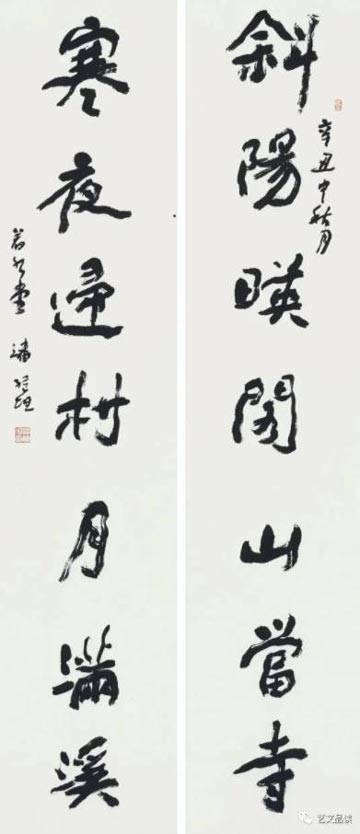 斜陽暎閣山當寺
辛丑中秋月
寒夜歸村月滿溪
艺文品谈